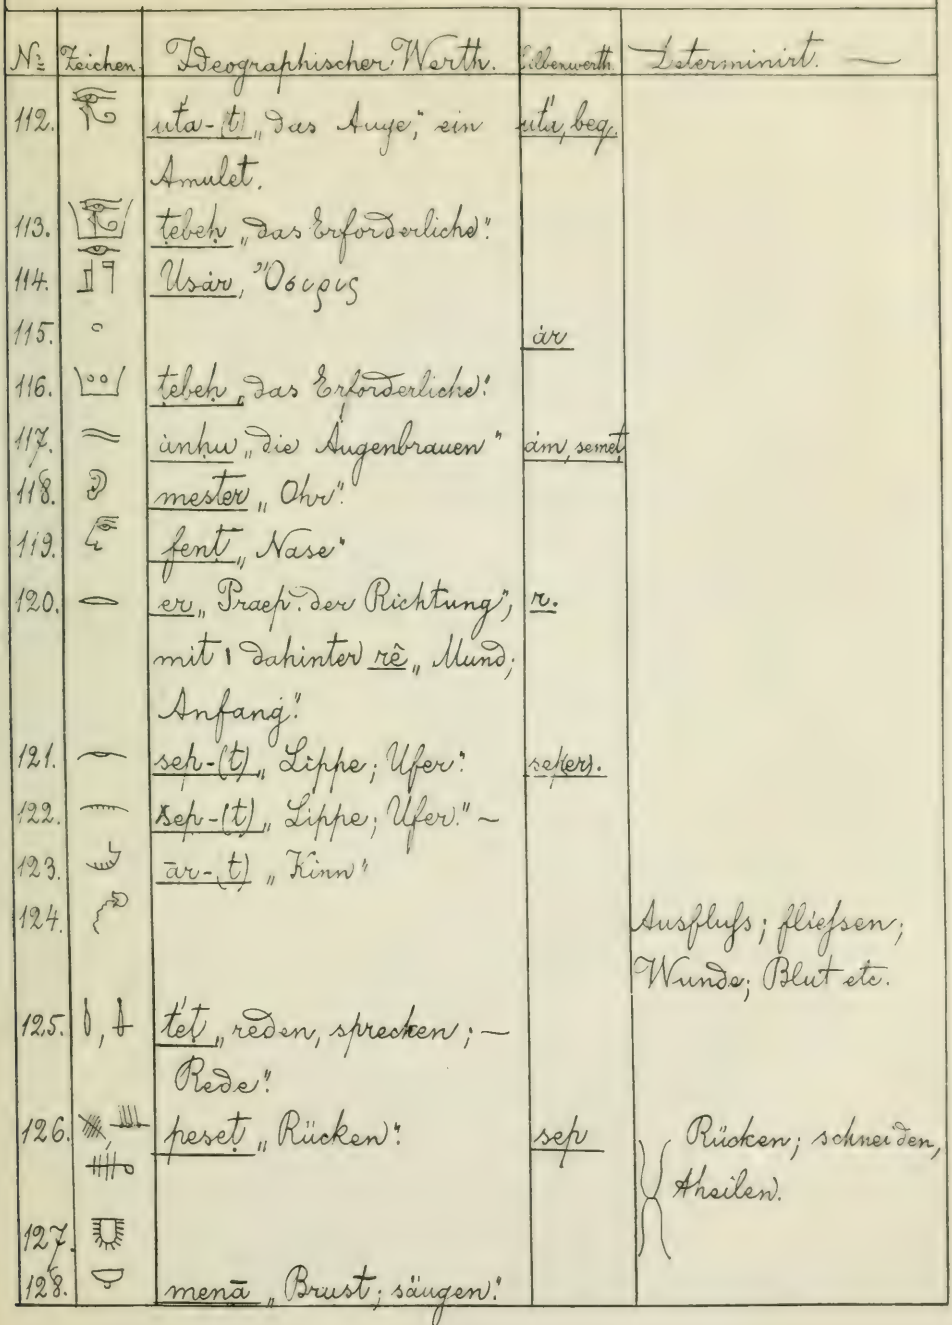 № Zeichen. Ideographischer Werth. Silbenwerth. Determinirt. —
112. uťa-(t) „das Auge“; ein uťa, beq.
Amulet.
113. ṭebeḥ „das Erforderliche“.
114. Usȧr, Ὄσιρις
115. ȧr
116. ṭebeḥ „das Erforderliche“.
117. ȧnhu „die Augenbrauen“ ȧm, semeṭ
118. mester „Ohr“.
119. fent „Nase“
120. er „Praep. der Richtung“, r.
mit 𓏤 dahinter rê „Mund;
Anfang“.
121. sep-(t) „Lippe; Ufer“.
122. sep-(t) „Lippe; Ufer.“ ~
123. ār-(t) „Kinn“
124. Ausfluſs; flieſsen;
Wunde; Blut etc.
125. ťeṭ „reden, sprechen; —
Rede“.
126. peseṭ „Rücken“. sep Rücken; schneiden,
theilen.
127.
128. menā „Brust; säugen“.